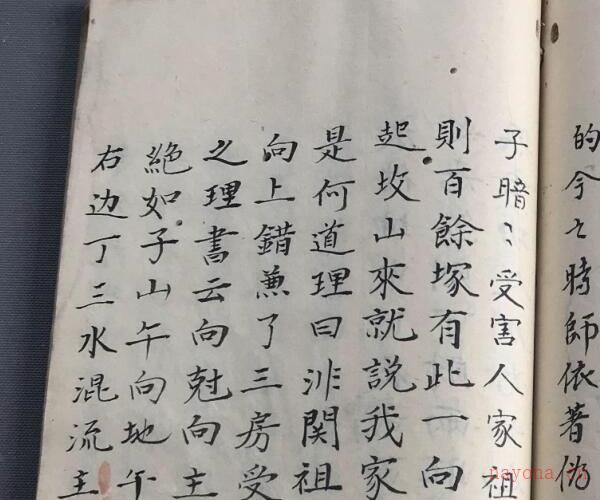 的今〻時師依著偽
子暗〻受害人家祖
則百餘塚有此一向
起坟山來就説我家
是何道理曰非関祖
向上錯蒹了三房受
之理書云向尅向主
絕如子山午向地午
右边丁三水混流主
nayona.cn